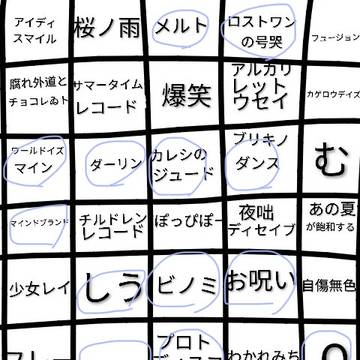 アイディ
スマイル
桜ノ雨
メルト
ロストワン
の号哭
フュージョン
腐れ外道と
チョコレゐト
サマータイム
レコード
爆笑
アルカリ
レット
ウセイ
カゲロウデイズ
ワールドイズ
マイン
ダーリン
カレシの
ジュード
ブリキノ
ダンス
む
マインドブランド
チルドレン
レコード
ぽっぴっぽー
夜咄
ディセイブ
あの夏
が飽和する
少女レイ
しう
ビノミ
お呪い
自傷無色
フレー
プロト
わかれみち